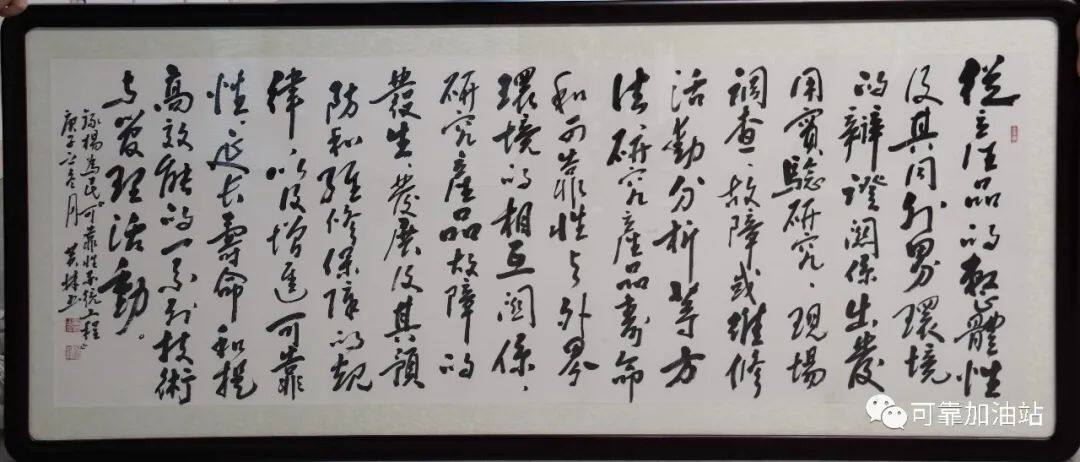 從产品的整體性
及其同外界環境
的辯證関係出發
用實驗研究、現場
調查、故障或維修
活動分析等方
法、研究產品壽命
和可靠性与外界
環境的相互関係、
研究產品故障的
發生、發展及其預
防和維修保障的規
律、以及增進可靠
性、延長壽命和提
高效能的一系列技術
与管理活動。
錄楊為民可靠性系統工程
庚子冬月 書
可靠加油站